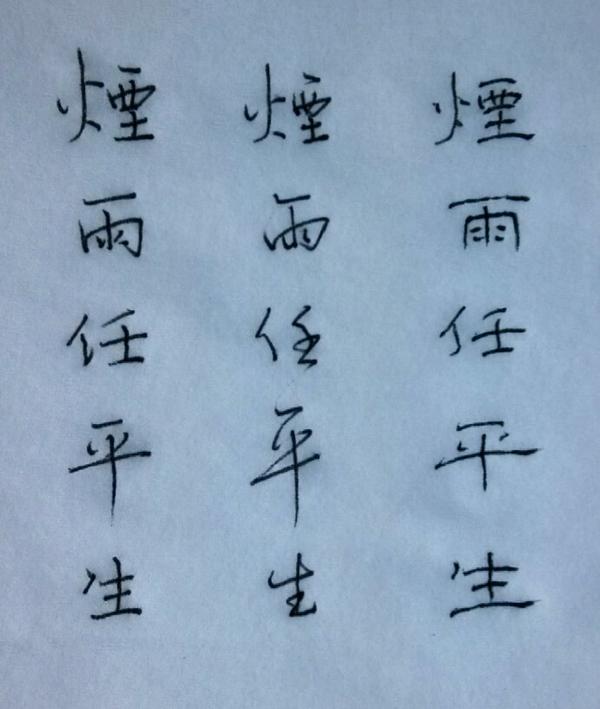 煙雨任平生
煙雨任平生
煙雨任平生